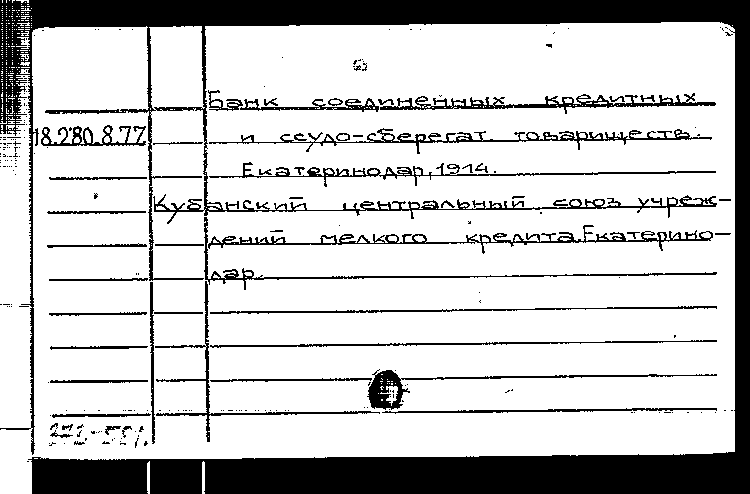 Банк соединенных кредитных
18.280.8.77 и ссудо-сберегат. товариществ.
Екатеринодар, 1914.
Кубанский центральный союз учреж-
дений мелкого кредита. Екатерино-
дар.